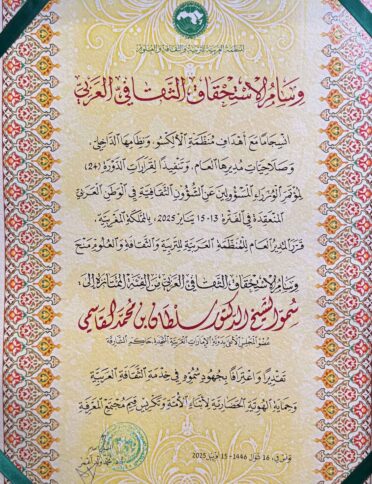 المنظمة العربية للتربية والثقافة والعلوم
وسام الاستحقاق الثقافي العربي
انسجاما مع أهداف منظمة الألكسو، ونظامها الداخلي،
وصلاحيات مديرها العام، وتنفيذا لقرارات الدورة (24)
لمؤتمر الوزراء المسؤولين عن الشؤون الثقافية في الوطن العربي
المنعقدة في الفترة 13-15 يناير 2025، بالمملكة المغربية،
قرر المدير العام للمنظمة العربية للتربية والثقافة والعلوم منح
وسام الاستحقاق الثقافي العربي من الفئة الممتازة إلى:
سمو الشيخ الدكتور سلطان بن محمد القاسمي
عضو المجلس الأعلى بدولة الإمارات العربية المتحدة حاكم الشارقة
تقديرا واعترافا بجهود سموه في خدمة الثقافة العربية
وحماية الهوية الحضارية لأبناء الأمة وتكريس قيم مجتمع المعرفة
تونس في، 16 شوال 1446 - 15 أبريل 2025